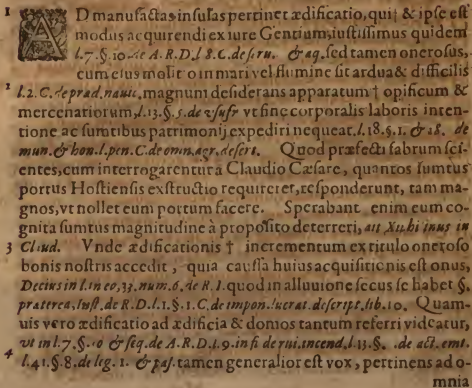 1 AD manufactas insulas pertinet ædificatio, qui† & ipse est
modus acquirendi ex iure Gentium, iustissimus quidem
l.7. §. 10. de A. R. D. l 8. C. de seru. & aq. sed tamen onerosus,
cum eius molitio in mari vel flumine sit ardua & difficilis
2 l.2. C. de præd. nauic. magnum desiderans apparatum † opificum &
mercenariorum, l.13. §. 5. de vsufr vt sine corporalis laboris inten-
tione ac sumtibus patrimonij expediri nequeat. l.18. §. 1. & 18. de
mun. & hon. l. pen. C. de omn. agr. desert. Quod præfecti fabrum sci-
entes, cum interrogarentur a Claudio Cæsare, quantos sumtus
portus Hostiensis exstructio requireret, responderunt, tam ma-
gnos, vt nollet eum portum facere. Sperabant enim eum co-
gnita sumtus magnitudine à proposito deterreri, ait Xiphilinus in
3 Claud. Vnde ædificationis † incrementum ex titulo oneroso
bonis nostris accedit, quia caussa huius acquisitionis est onus,
Decius in l. in eo, 33. num. 6. de R. I. quod in alluuione secus se habet §.
præterea, Inst. de R. D. l. 1. §. 1. C. de impon. lucrat. descript. lib. 10. Quam-
uis vero ædificatio ad ædificia & domos tantum referri videatur,
vt in l.7. §. 10 & seq. de A. R. D. l.9. in fi de rui. incend, l.13. §. . de act. emt.
4 l.41. §. 8. de leg. 1. & pas. tamen generalior est vox, pertinens ad o-
mnia